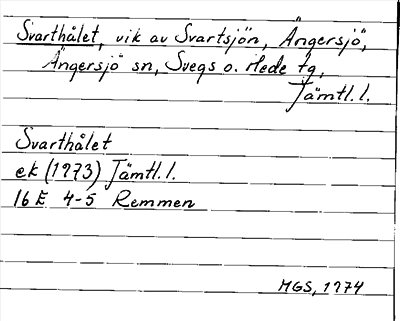 Svarthålet, vik av Svartsjön, Ängersjö,
Ängersjö sn, Svegs o. Hede tg,
Jämtl. l.
Svarthålet
ek (1973) Jämtl. l.
16 E 4-5 Remmen
MGS, 1974